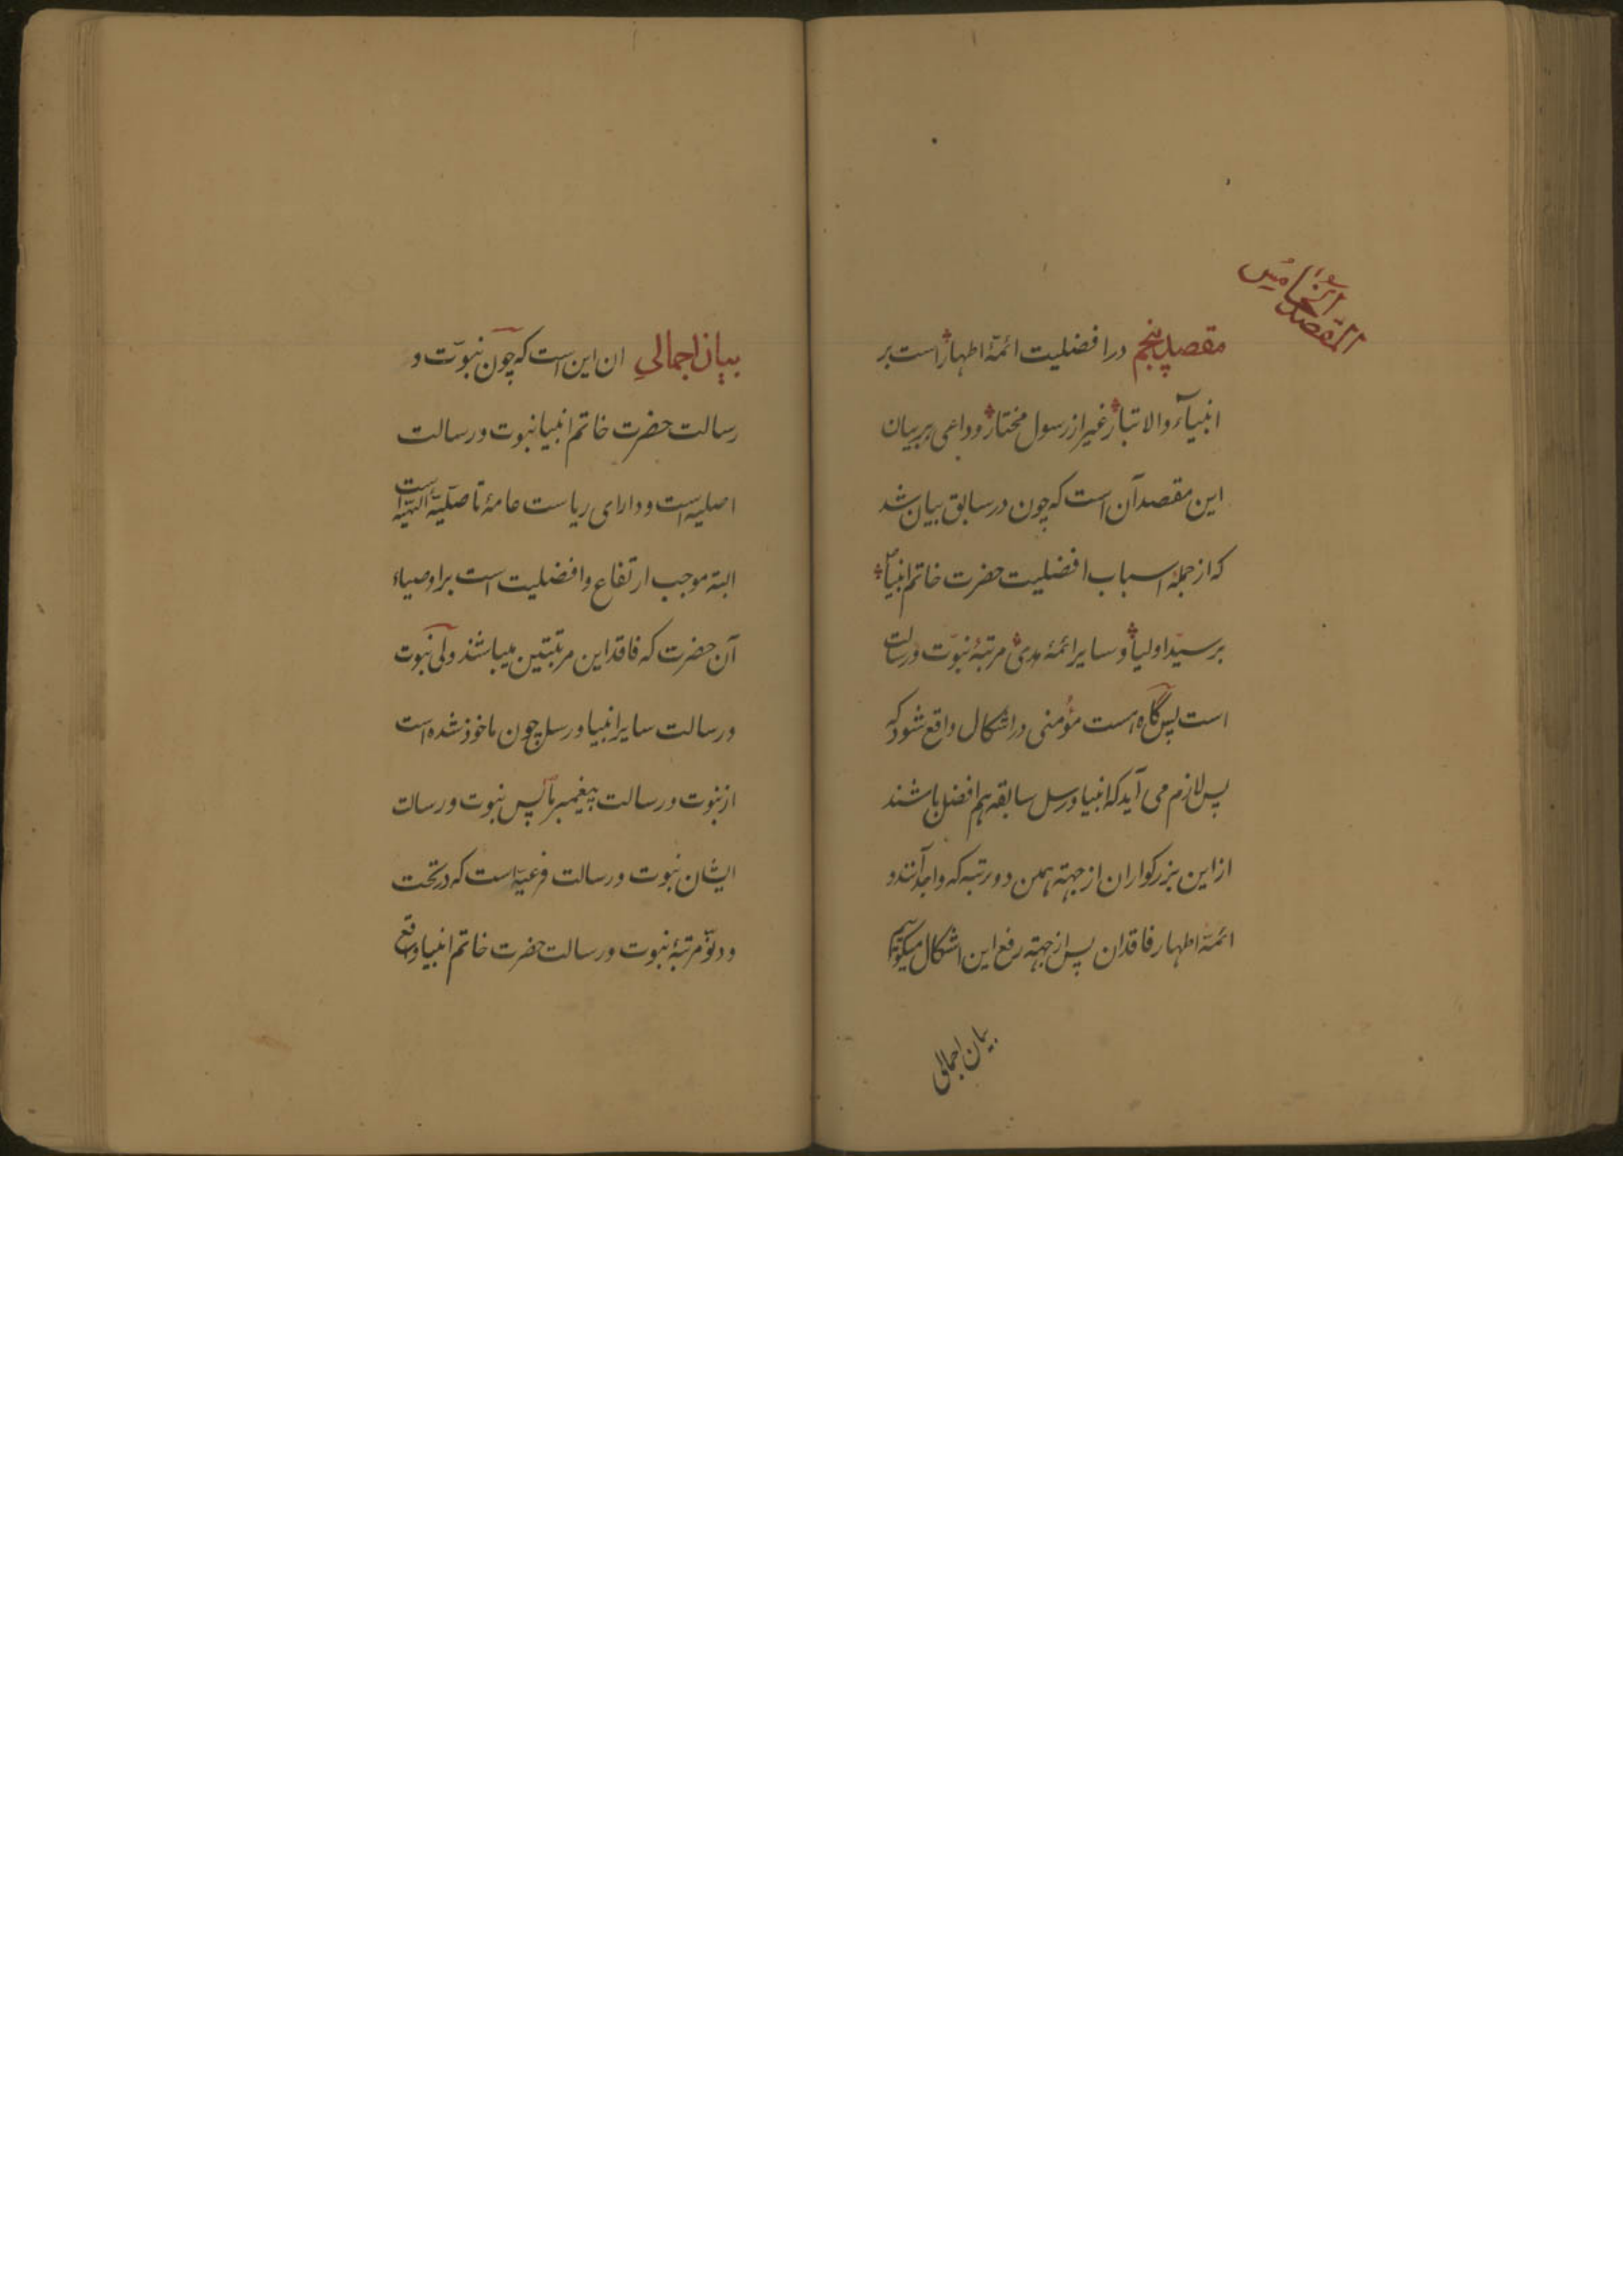 المقصد الخامس
مقصد پنجم در افضلیت ائمّهٔ اطهار است بر
انبیآء والاتبار غیر از رسول مختار و داعی بر بیان
این مقصد آن است که چون در سابق بیان شد
که از جملهٔ اسباب افضلیت حضرت خاتم انبیا
بر سیّد اولیا و سایر ائمهٔ هدی مرتبهٔ نبوّت و رسالت
است پس گاه هست مؤمنی در اشکال واقع شود که
پس لازم می آید که انبیا و رسل سابقه هم افضل باشند
از این بزرکواران از جهته همین دو رتبه که واجد آنند و
ائمّهٔ اطهار فاقدان پس از جهته رفع این اشکال میکوئیم
بیان اجمالی
بیان اجمالی ان این است که چون نبوّت و
رسالت حضرت خاتم انبیا نبوت و رسالت
اصلیه است و دارای ریاست عامهٔ تاصلیّهٔ الهیّه است
البته موجب ارتفاع و افضلیت است بر اوصیاء
آن حضرت که فاقد این مرتبتین میباشند ولی نبوت
و رسالت سایر انبیا و رسل چون ماخوذ شده است
از نبوت و رسالت پیغمبر ما پس نبوت و رسالت
ایشان نبوت و رسالت فرعیّه است که در تحت
و دنوّ مرتبهٔ نبوت و رسالت حضرت خاتم انبیا واقع